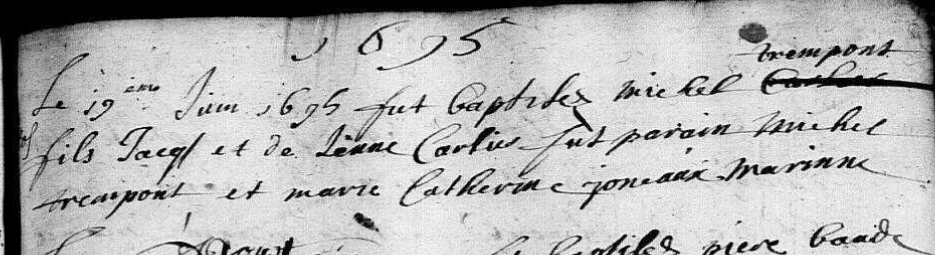 1695
trempont
Le 19eme Juin 1695 fut baptisez Michel
fils Jacq et de Jenne Carlier fut parain Michel
trempont et marie Catherine joneaux Marinne
baptisez piere baude